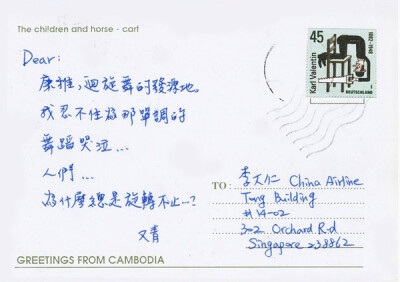 The children and horse - cart
45
Karl Valentin
1882-1948
DEUTSCHLAND
Dear:
康雅,迴旋舞的發源地
我忍不住為那單調的
舞蹈哭泣...
人們...
為什麼總是旋轉不止...?
又青
TO: 李大仁 China Airline
Tung Building
#14-02
302 Orchard Rd
Singapore 238862
GREETINGS FROM CAMBODIA